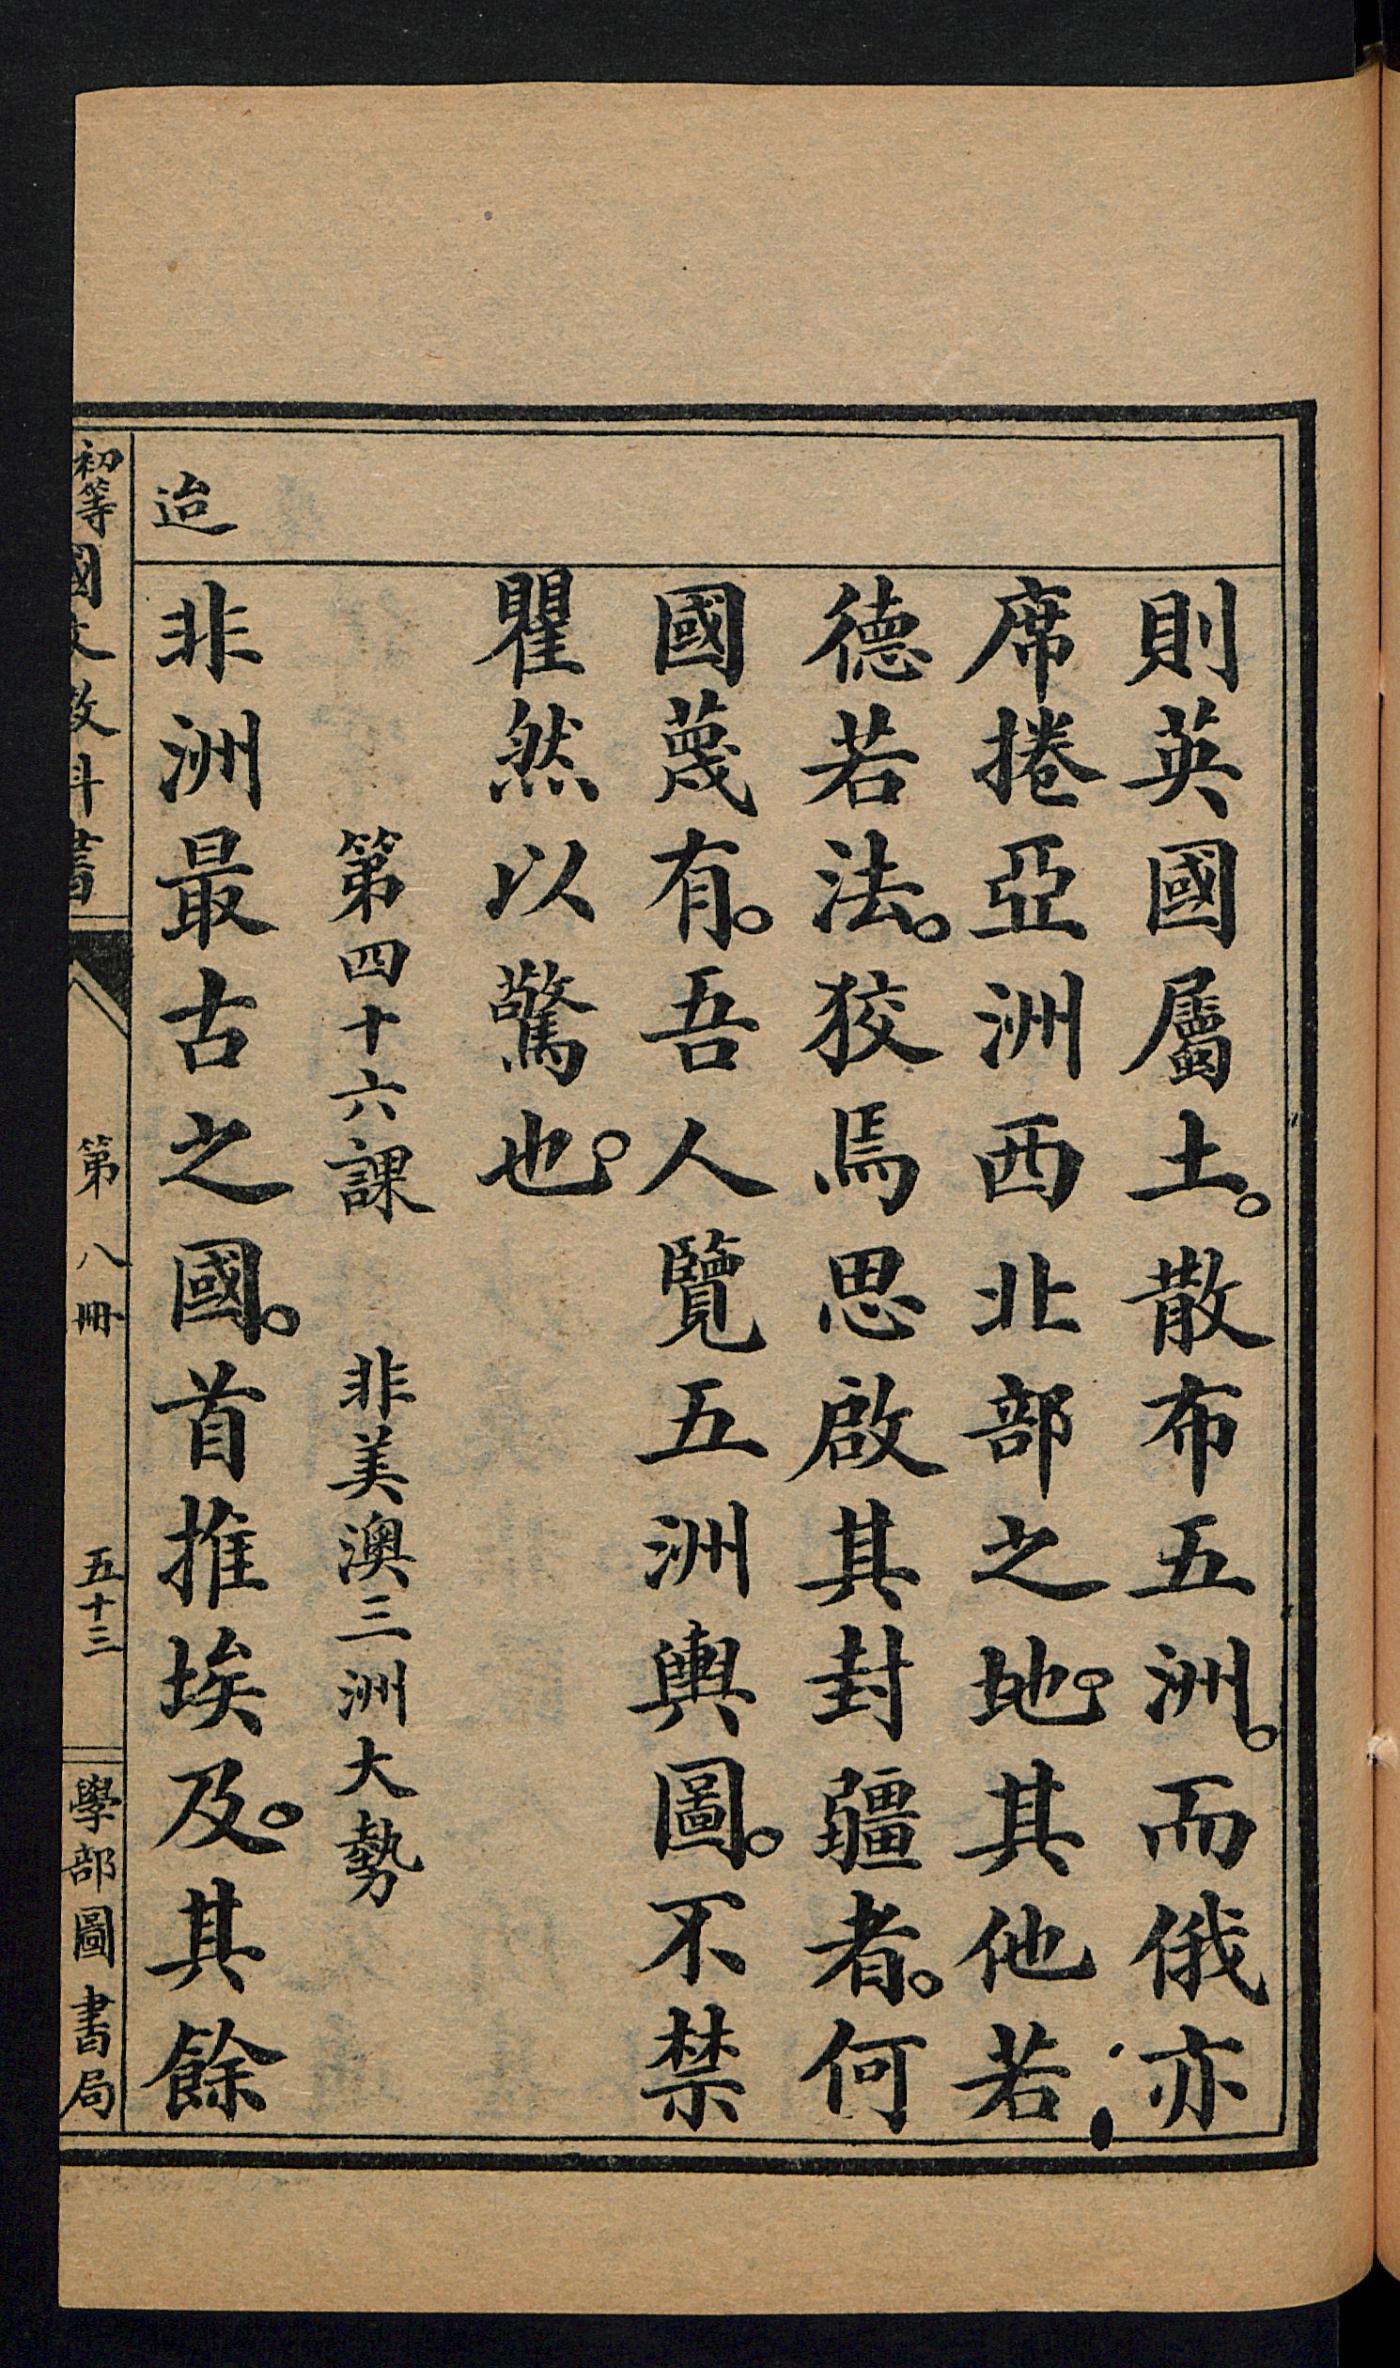 則英國屬土。散布五洲。而俄亦
席捲亞洲西北部之地。其他若
德若法。狡焉思啟其封疆者。何
國蔑有。吾人覽五洲輿圖。不禁
瞿然以驚也。
第四十六課　非美澳三洲大勢
迨
非洲最古之國。首推埃及。其餘
初等國文教科書　第八冊　五十三　學部圖書局